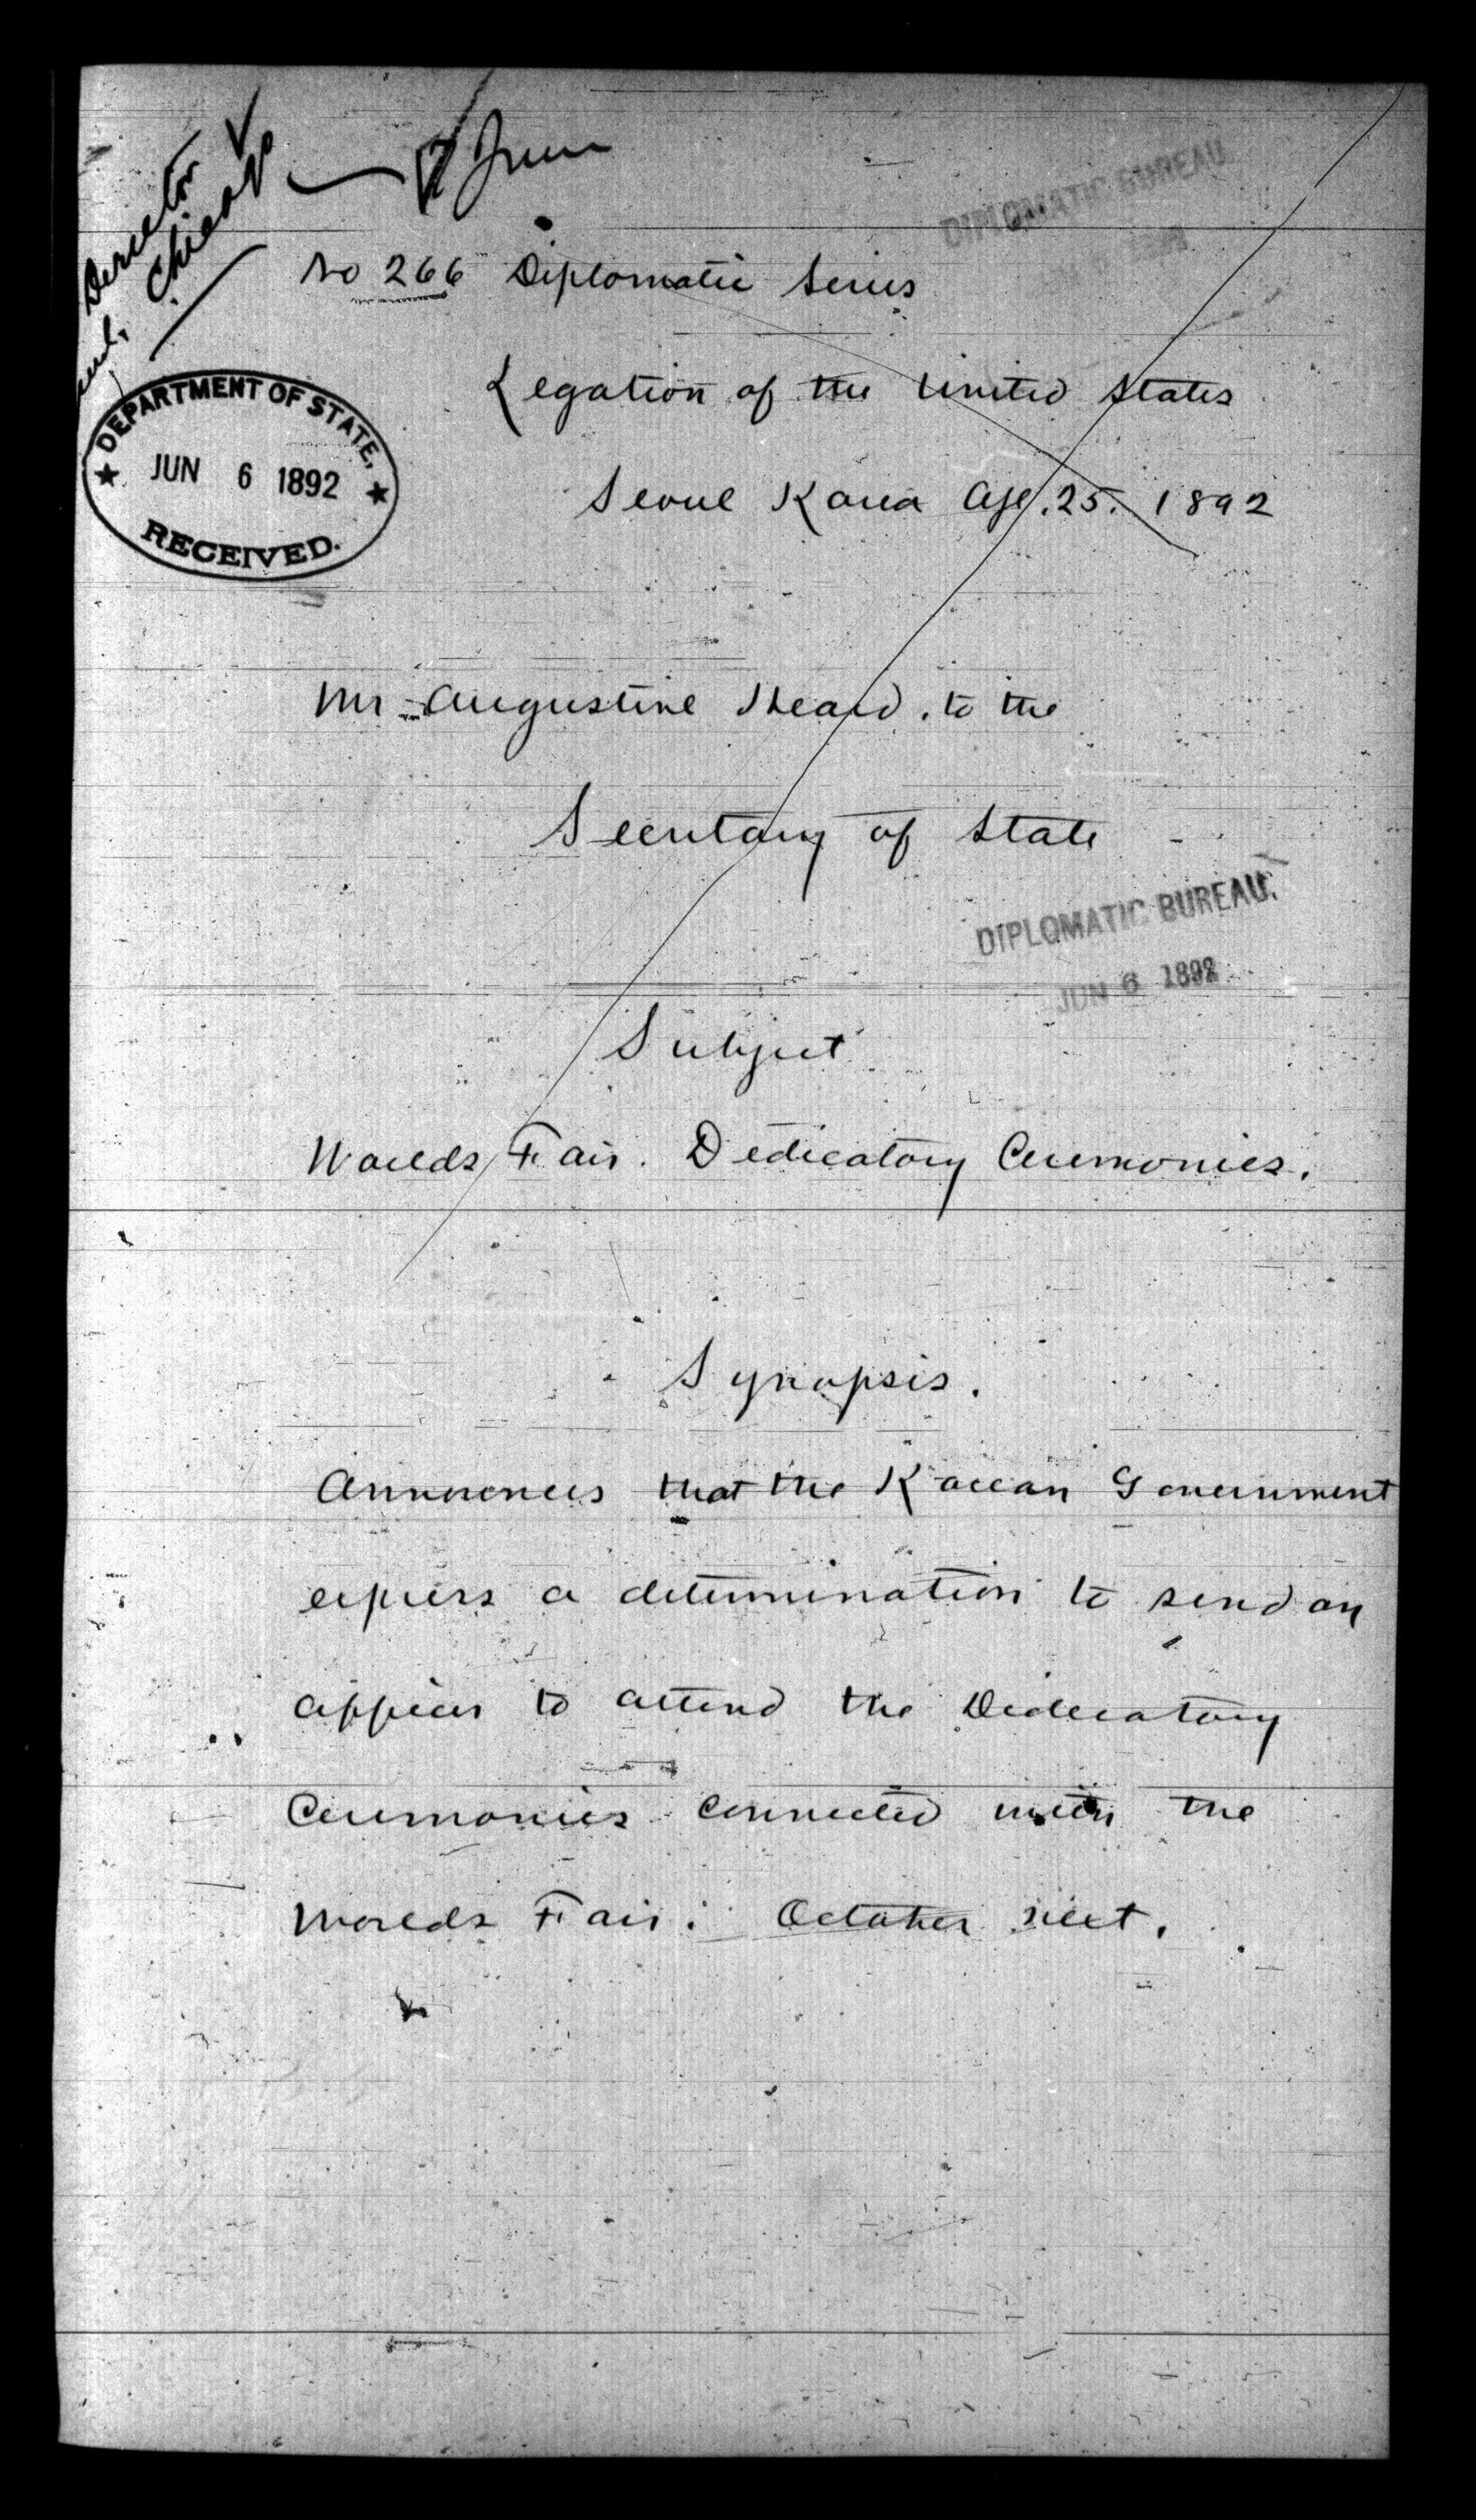 Director
Chicago
7 June
DIPLOMATIC BUREAU
No 266 Diplomatic Series
Legation of the United States
DEPARTMENT OF STATE,
JUN 6 1892
RECEIVED.
Seoul Korea Apl. 25. 1892
Mr Augustine Heard, to the
Secretary of State
DIPLOMATIC BUREAU.
JUN 6 1892
Subject
Worlds Fair. Dedicatory Ceremonies.
Synopsis.
Announces that the Korean Government
express a determination to send an
officer to attend the Dedicatory
Ceremonies connected with the
Worlds Fair: October next.